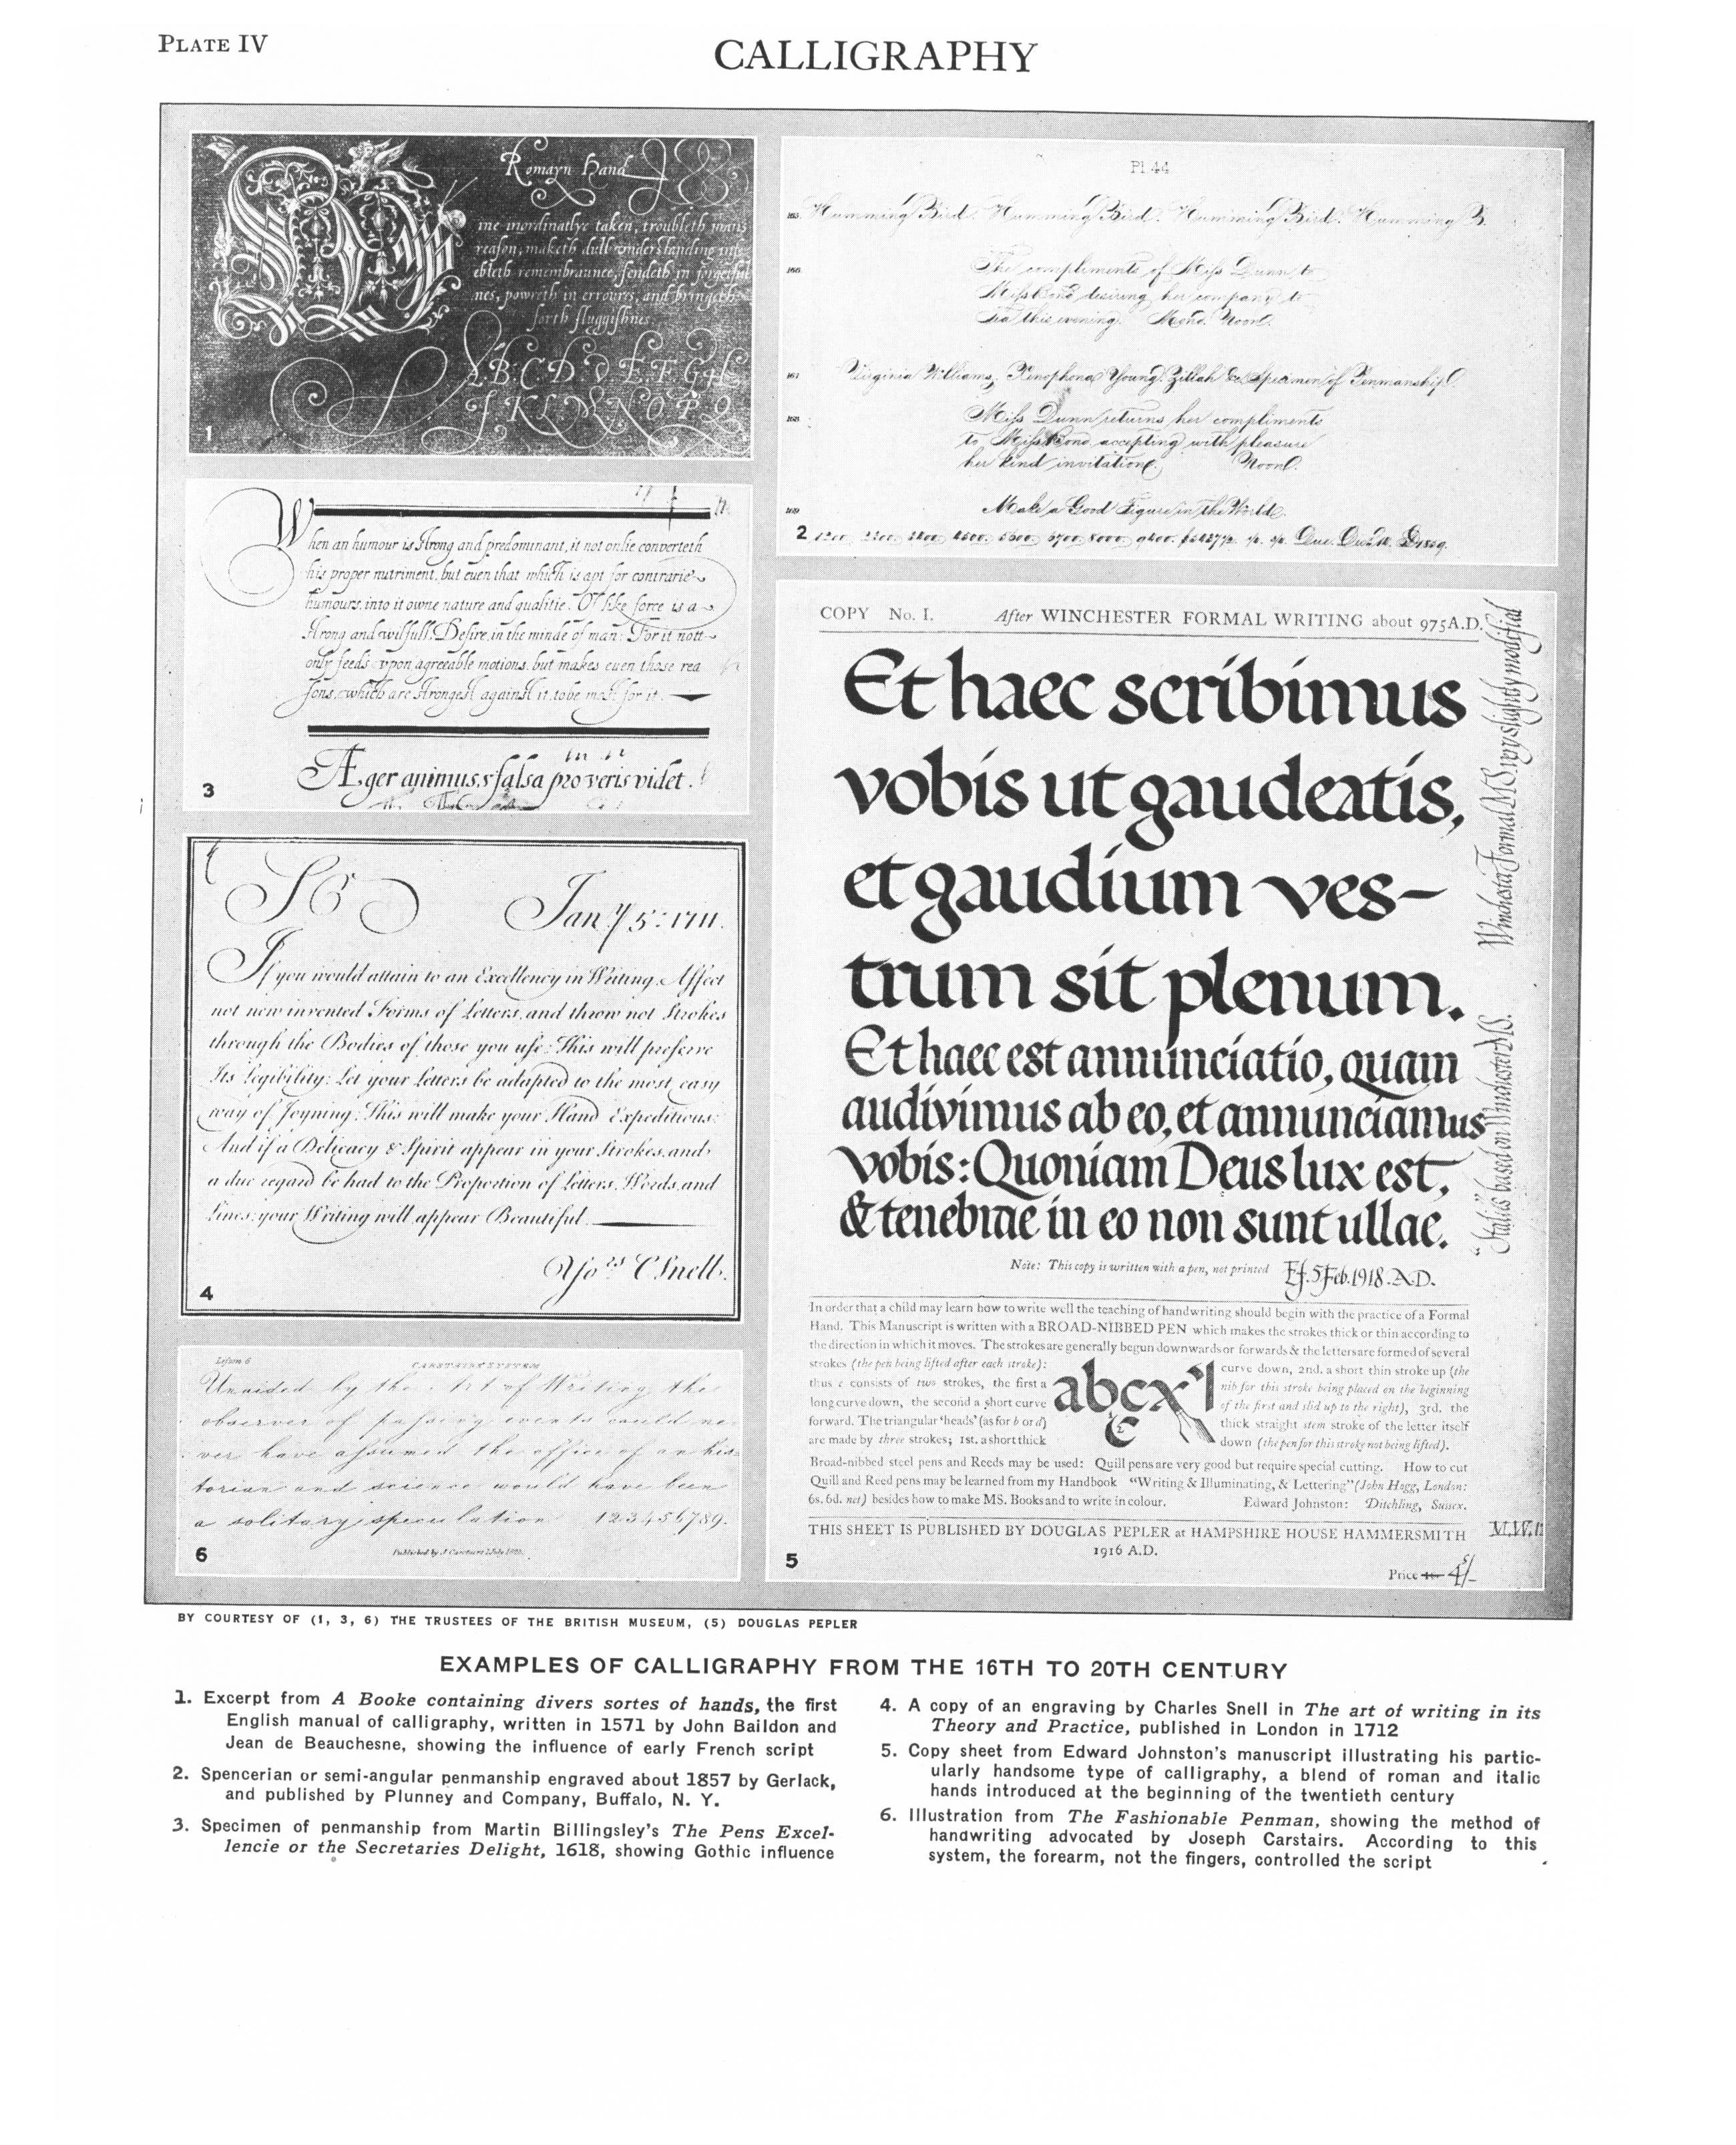 PLATE IV
CALLIGRAPHY
Romayn Hand
ine inordinatlye taken, troubleth mans
reason, maketh dull understanding, infe
ebleth remembraunce, sendeth in forgetful
nes, powreth in erroures, and bringeth
forth sluggishnes
A.B.C.D.d.E.F.G.H
J.K.L.M.N.O.P.Q
1
Pl 44.
165. Humming Bird. Humming Bird. Humming Bird. Humming B.
166. The compliments of Miss Dunn to
Miss Bond desiring her company to
Tea this evening. Mond. Noon.
167 Virginia Williams, Xenophona Young. Zillah &c. Specimen of Penmanship.
168 Miss Dunn returns her compliments
to Miss Bond accepting with pleasure
her kind invitation. Noon.
169 Make a Good Figure in the World.
2
When an humour is strong and predominant, it not onlie converteth
his proper nutriment, but euen that which is apt for contrarie
humours, into it owne nature and qualitie. Of like force is a
strong and wilfull Desire, in the minde of man: For it nott
only feeds vpon agreeable motions, but makes euen those rea
sons, which are strongest against it, to be most for it.
Æger animus, falsa pro veris videt.
3
Sr Jan.y 5: 1711.
If you would attain to an Excellency in Writing, Affect
not new invented Forms of Letters, and throw not Strokes
through the Bodies of those you use: This will preserve
Its Legibility: Let your Letters be adapted to the most easy
way of Joyning: This will make your Hand Expeditious:
And if a Delicacy & Spirit appear in your Strokes, and
a due regard be had to the Proportion of Letters, Words, and
Lines; your Writing will appear Beautiful.
Yo.rs C Snell.
4
COPY No. I. After WINCHESTER FORMAL WRITING about 975 A.D.
Et haec scribimus
vobis ut gaudeatis,
et gaudium ves-
trum sit plenum.
Et haec est annunciatio, quam
audivimus ab eo, et annunciamus
vobis: Quoniam Deus lux est,
& tenebrae in eo non sunt ullae.
Winchester Formal MS. very slightly modified
"Italic" based on Winchester MS.
Note: This copy is written with a pen, not printed EJ. 5 Feb. 1918. A.D.
In order that a child may learn how to write well the teaching of handwriting should begin with the practice of a Formal
Hand. This Manuscript is written with a BROAD-NIBBED PEN which makes the strokes thick or thin according to
the direction in which it moves. The strokes are generally begun downwards or forwards & the letters are formed of several
strokes (the pen being lifted after each stroke):
thus c consists of two strokes, the first a
long curve down, the second a short curve
forward. The triangular 'heads' (as for b or d)
are made by three strokes; 1st. a short thick
abcx
curve down, 2nd. a short thin stroke up (the
nib for this stroke being placed on the beginning
of the first and slid up to the right), 3rd. the
thick straight stem stroke of the letter itself
down (the pen for this stroke not being lifted).
Broad-nibbed steel pens and Reeds may be used: Quill pens are very good but require special cutting. How to cut
Quill and Reed pens may be learned from my Handbook "Writing & Illuminating, & Lettering" (John Hogg, London:
6s. 6d. net) besides how to make MS. Books and to write in colour. Edward Johnston: Ditchling, Sussex.
THIS SHEET IS PUBLISHED BY DOUGLAS PEPLER at HAMPSHIRE HOUSE HAMMERSMITH
1916 A.D.
Price 4/-
5
Lesson 6
CARSTAIRS SYSTEM
Unaided by the Art of Writing the
observer of passing events could ne-
ver have assumed the office of an his-
torian and science would have been
a solitary speculation 123456789.
6
BY COURTESY OF (1, 3, 6) THE TRUSTEES OF THE BRITISH MUSEUM, (5) DOUGLAS PEPLER
EXAMPLES OF CALLIGRAPHY FROM THE 16TH TO 20TH CENTURY
1. Excerpt from A Booke containing divers sortes of hands, the first
English manual of calligraphy, written in 1571 by John Baildon and
Jean de Beauchesne, showing the influence of early French script
2. Spencerian or semi-angular penmanship engraved about 1857 by Gerlack,
and published by Plunney and Company, Buffalo, N. Y.
3. Specimen of penmanship from Martin Billingsley's The Pens Excel-
lencie or the Secretaries Delight, 1618, showing Gothic influence
4. A copy of an engraving by Charles Snell in The art of writing in its
Theory and Practice, published in London in 1712
5. Copy sheet from Edward Johnston's manuscript illustrating his partic-
ularly handsome type of calligraphy, a blend of roman and italic
hands introduced at the beginning of the twentieth century
6. Illustration from The Fashionable Penman, showing the method of
handwriting advocated by Joseph Carstairs. According to this
system, the forearm, not the fingers, controlled the script